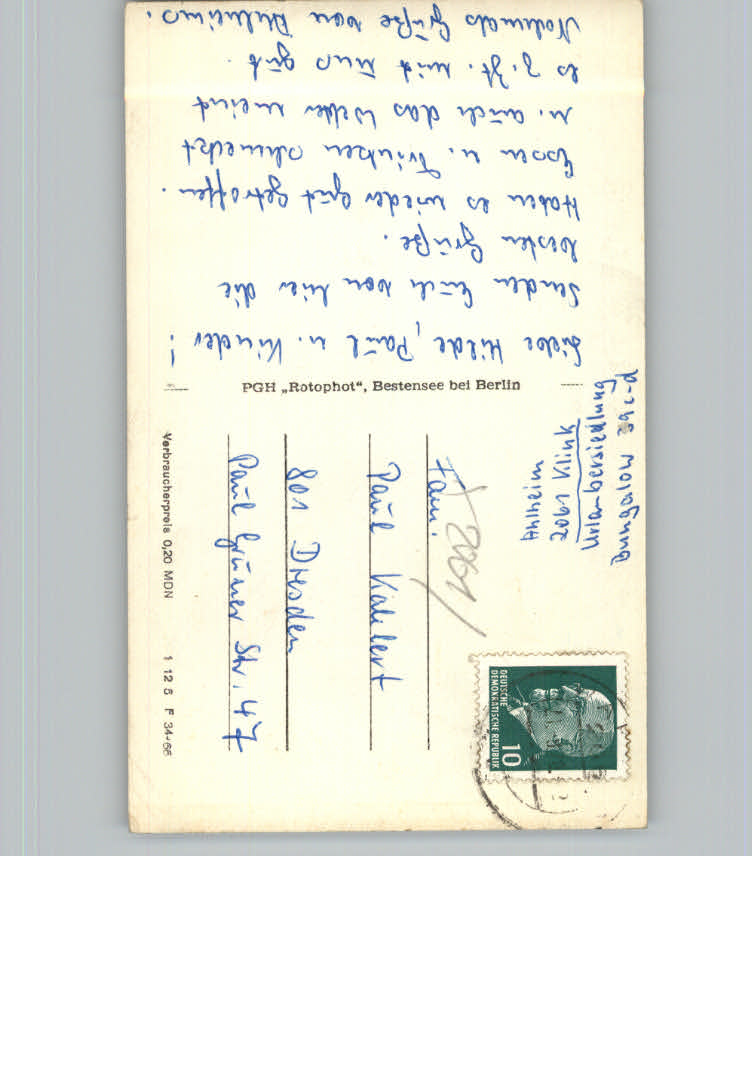 Liebe Hilde, Paul u. Kinder!
Senden Euch von hier die
besten Grüße.
Haben es wieder gut getroffen.
Essen u. Trinken schmeckt
u. auch das Wetter meint
es z. Zt. mit uns gut.
Nochmals Grüße von Ahlheims.
PGH „Rotophot“, Bestensee bei Berlin
Ahlheim
2061 Klink
Urlaubersiedlung
Bungalow 39 c-d
DEUTSCHE
DEMOKRATISCHE REPUBLIK
10
Fam.
Paul Kahlert
801 Dresden
Paul Grüner Str. 47
Verbraucherpreis 0,20 MDN 1 12 5 F 34-66